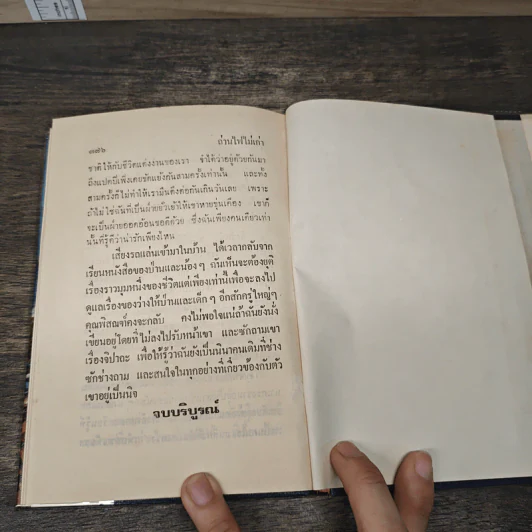 ๓๘๖ ถ่านไฟไม่เก่า
ชาติให้กับชีวิตแต่งงานของเรา จำได้ว่าอยู่ด้วยกันมา
ถึงแปดปีเพิ่งเคยขัดแย้งกันสามครั้งเท่านั้น และทั้ง
สามครั้งก็ไม่ทำให้เรามึนตึงต่อกันเกินวันเลย เพราะ
ถ้าไม่ใช่ฉันที่เป็นฝ่ายยั่วเย้าให้เขาหายขุ่นเคือง เขาก็
จะเป็นฝ่ายออดอ้อนขอคืนดีด้วย ซึ่งฉันเพียงคนเดียวเท่า
นั้นที่รู้ดีว่าน่ารักเพียงไหน
เสียงรถแล่นเข้ามาในบ้าน ได้เวลากลับจาก
เรียนหนังสือของป่านและน้อง ๆ ฉันเห็นจะต้องยุติ
เรื่องราวมุมหนึ่งของชีวิตแต่เพียงเท่านี้เพื่อจะลงไป
ดูแลเรื่องของว่างให้ป่านและเด็ก ๆ อีกสักครู่ใหญ่ๆ
คุณพิสณฑ์คงจะกลับ คงไม่พอใจแน่ถ้าฉันยังนั่ง
เขียนอยู่โดยที่ไม่ลงไปรับหน้าเขา และซักถามเขา
เรื่องจิปาถะ เพื่อให้รู้ว่าฉันยังเป็นนินาคนเดิมที่ช่าง
ซักช่างถาม และสนใจในทุกอย่างที่เกี่ยวข้องกับตัว
เขาอยู่เป็นนิจ
จบบริบูรณ์